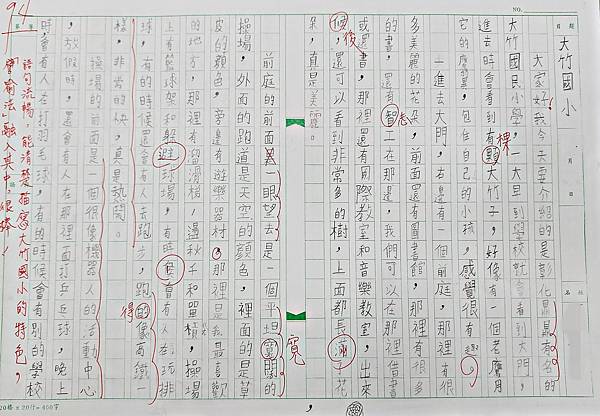 大竹國小
大家好！我今天要介紹的是彰化鼎鼎有名的
大竹國民小學，一大早到學校就會看到大門，
進去時會看到有顆大竹子，好像有一個老鷹用
它的魔翼，包住自己的小孩，感覺很有趣。
一進去大門，右邊有一個前庭，那裡有很
多美麗的花朵，前面還有圖書館，那裡有很多
的書，還有智志在那邊，我們可以在那裡借書
或還書，那裡還有國際教室和音樂教室，出來
後，還可以看到非常多的樹，上面都長滿了花
朵，真是美麗。
前庭的前面一眼望去是一個平坦寬闊的
操場，外面的跑道是天空的顏色，裡面的是草
皮的顏色，旁邊有遊樂器材，那裡是我最喜歡
的地方，那裡有溜滑梯、盪秋千和單槓，操場
上有籃球架和躲避球場，有時候會有人在玩排
球，有的時候還會有人去跑步，跑的像高鐵一
樣，非常的快，真是熱鬧。
操場的前面是一個很像機器人的活動中心
，放假時，還會有人在那裡面打乒乓球，晚上
時會有人在打羽毛球，有的時候會有別的學校
棵
後
寬
得
94
語句流暢，能清楚描寫大竹國小的特色，
「譬喻法」融入其中，很棒！
20格×20行=400字
NO.